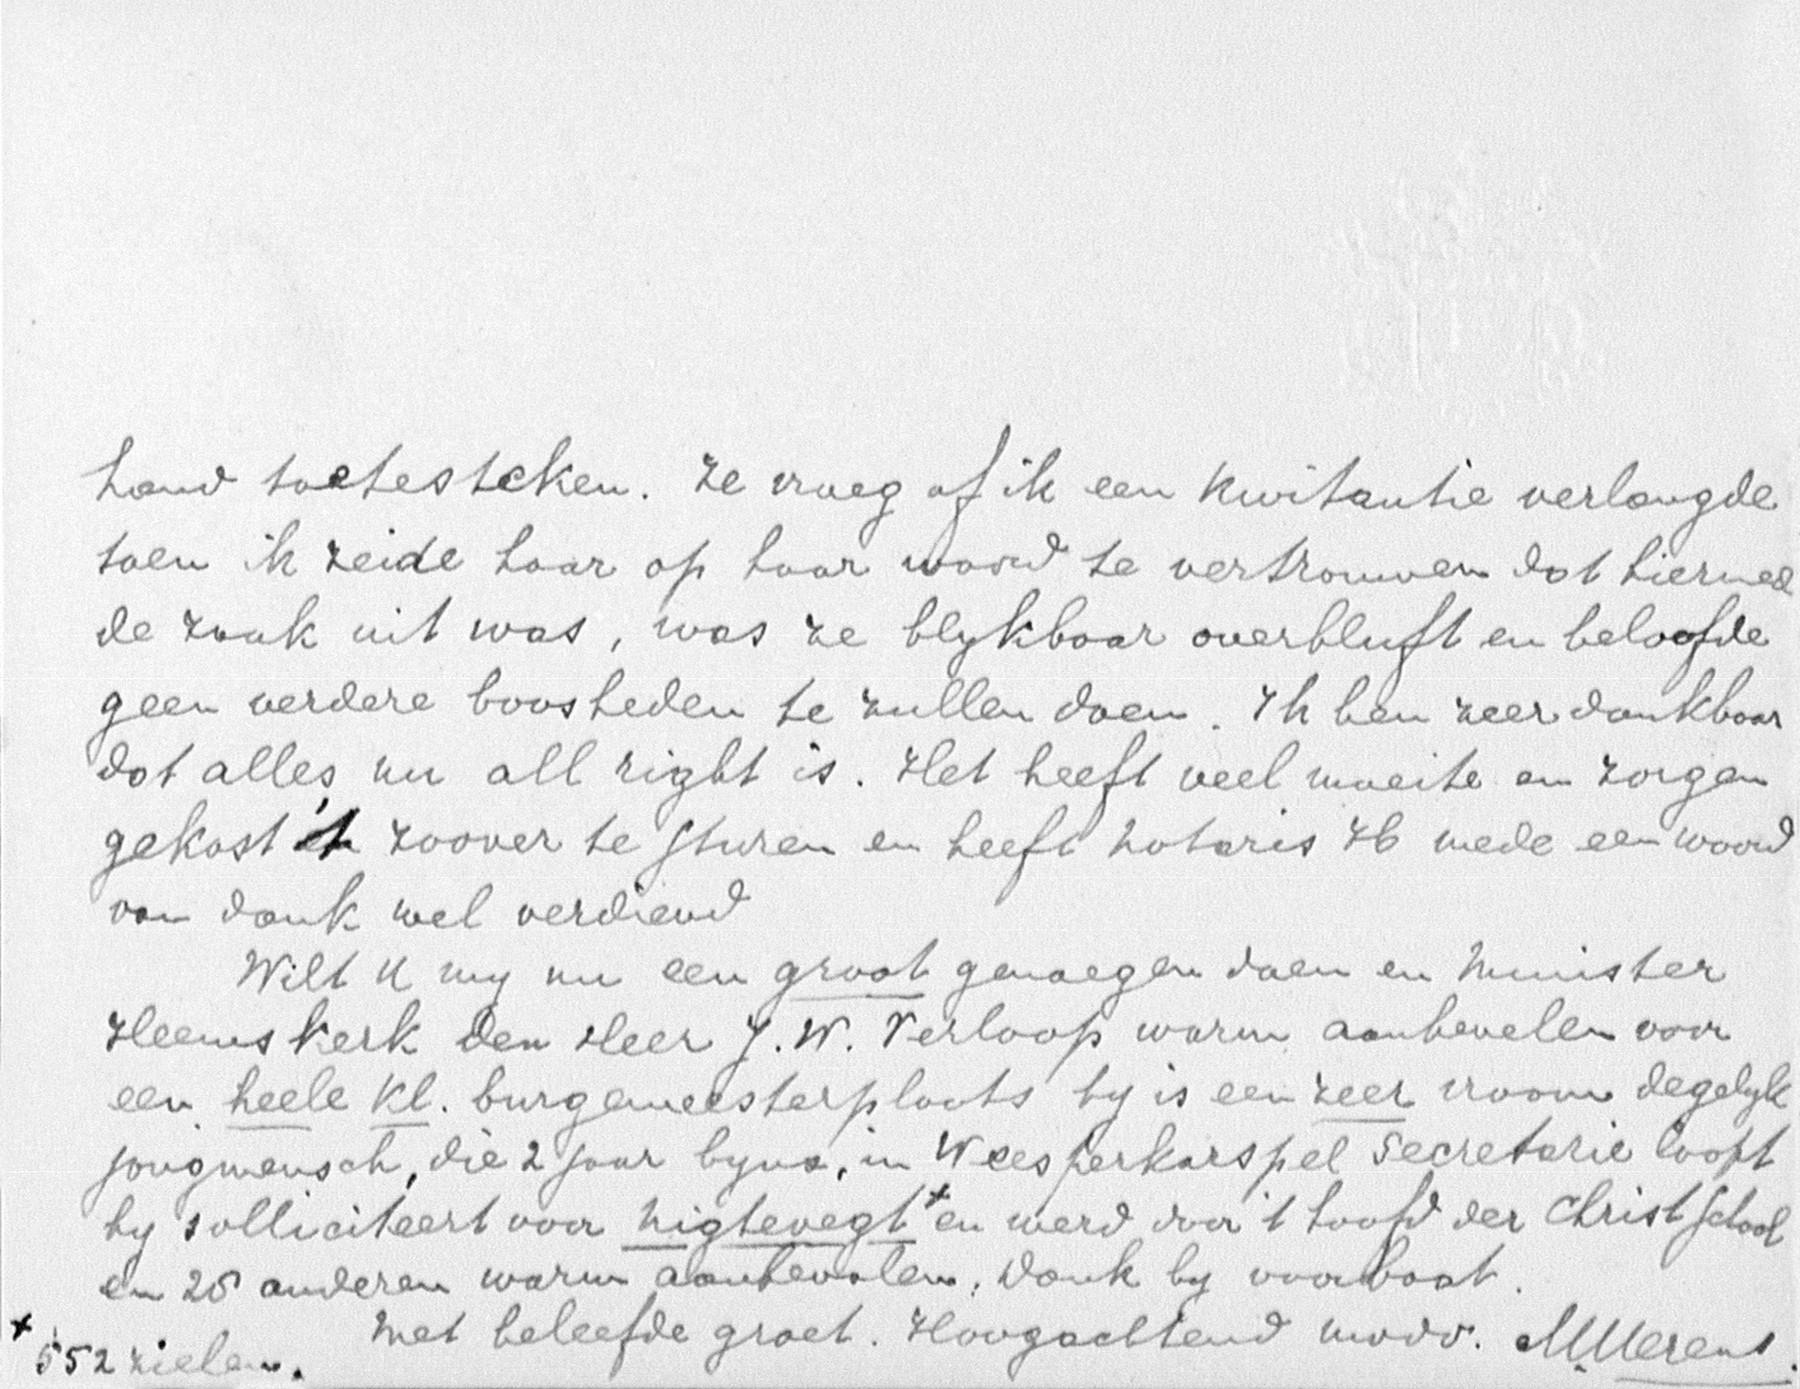 hand toetesteken. Ze vroeg of ik een kwitantie verlangde
toen ik zeide haar op haar woord te vertrouwen dat hiermed
de zaak uit was, was ze blykbaar overbluft en beloofde
geen verdere boosheden te zullen doen. Ik ben zeer dankbaar
dat alles nu all right is. Het heeft veel moeite en zorgen
gekost 't zoover te sturen en heeft notaris H mede een woord
van dank wel verdiend
Wilt U my nu een groot genoegen doen en Minister
Heemskerk den Heer J. W. Verloop warm aanbevelen voor
een heele kl. burgemeesterplaats hy is een zeer vroom degelyk
jongmensch, die 2 jaar byna, in Weesperkarspel secretarie loopt
hy solliciteert voor Nigtevegt + en werd door 't hoofd der Christ School
en 25 anderen warm aanbevolen. Dank by voorbaat.
Met beleefde groet. Hoogachtend
+ 552 zielen.